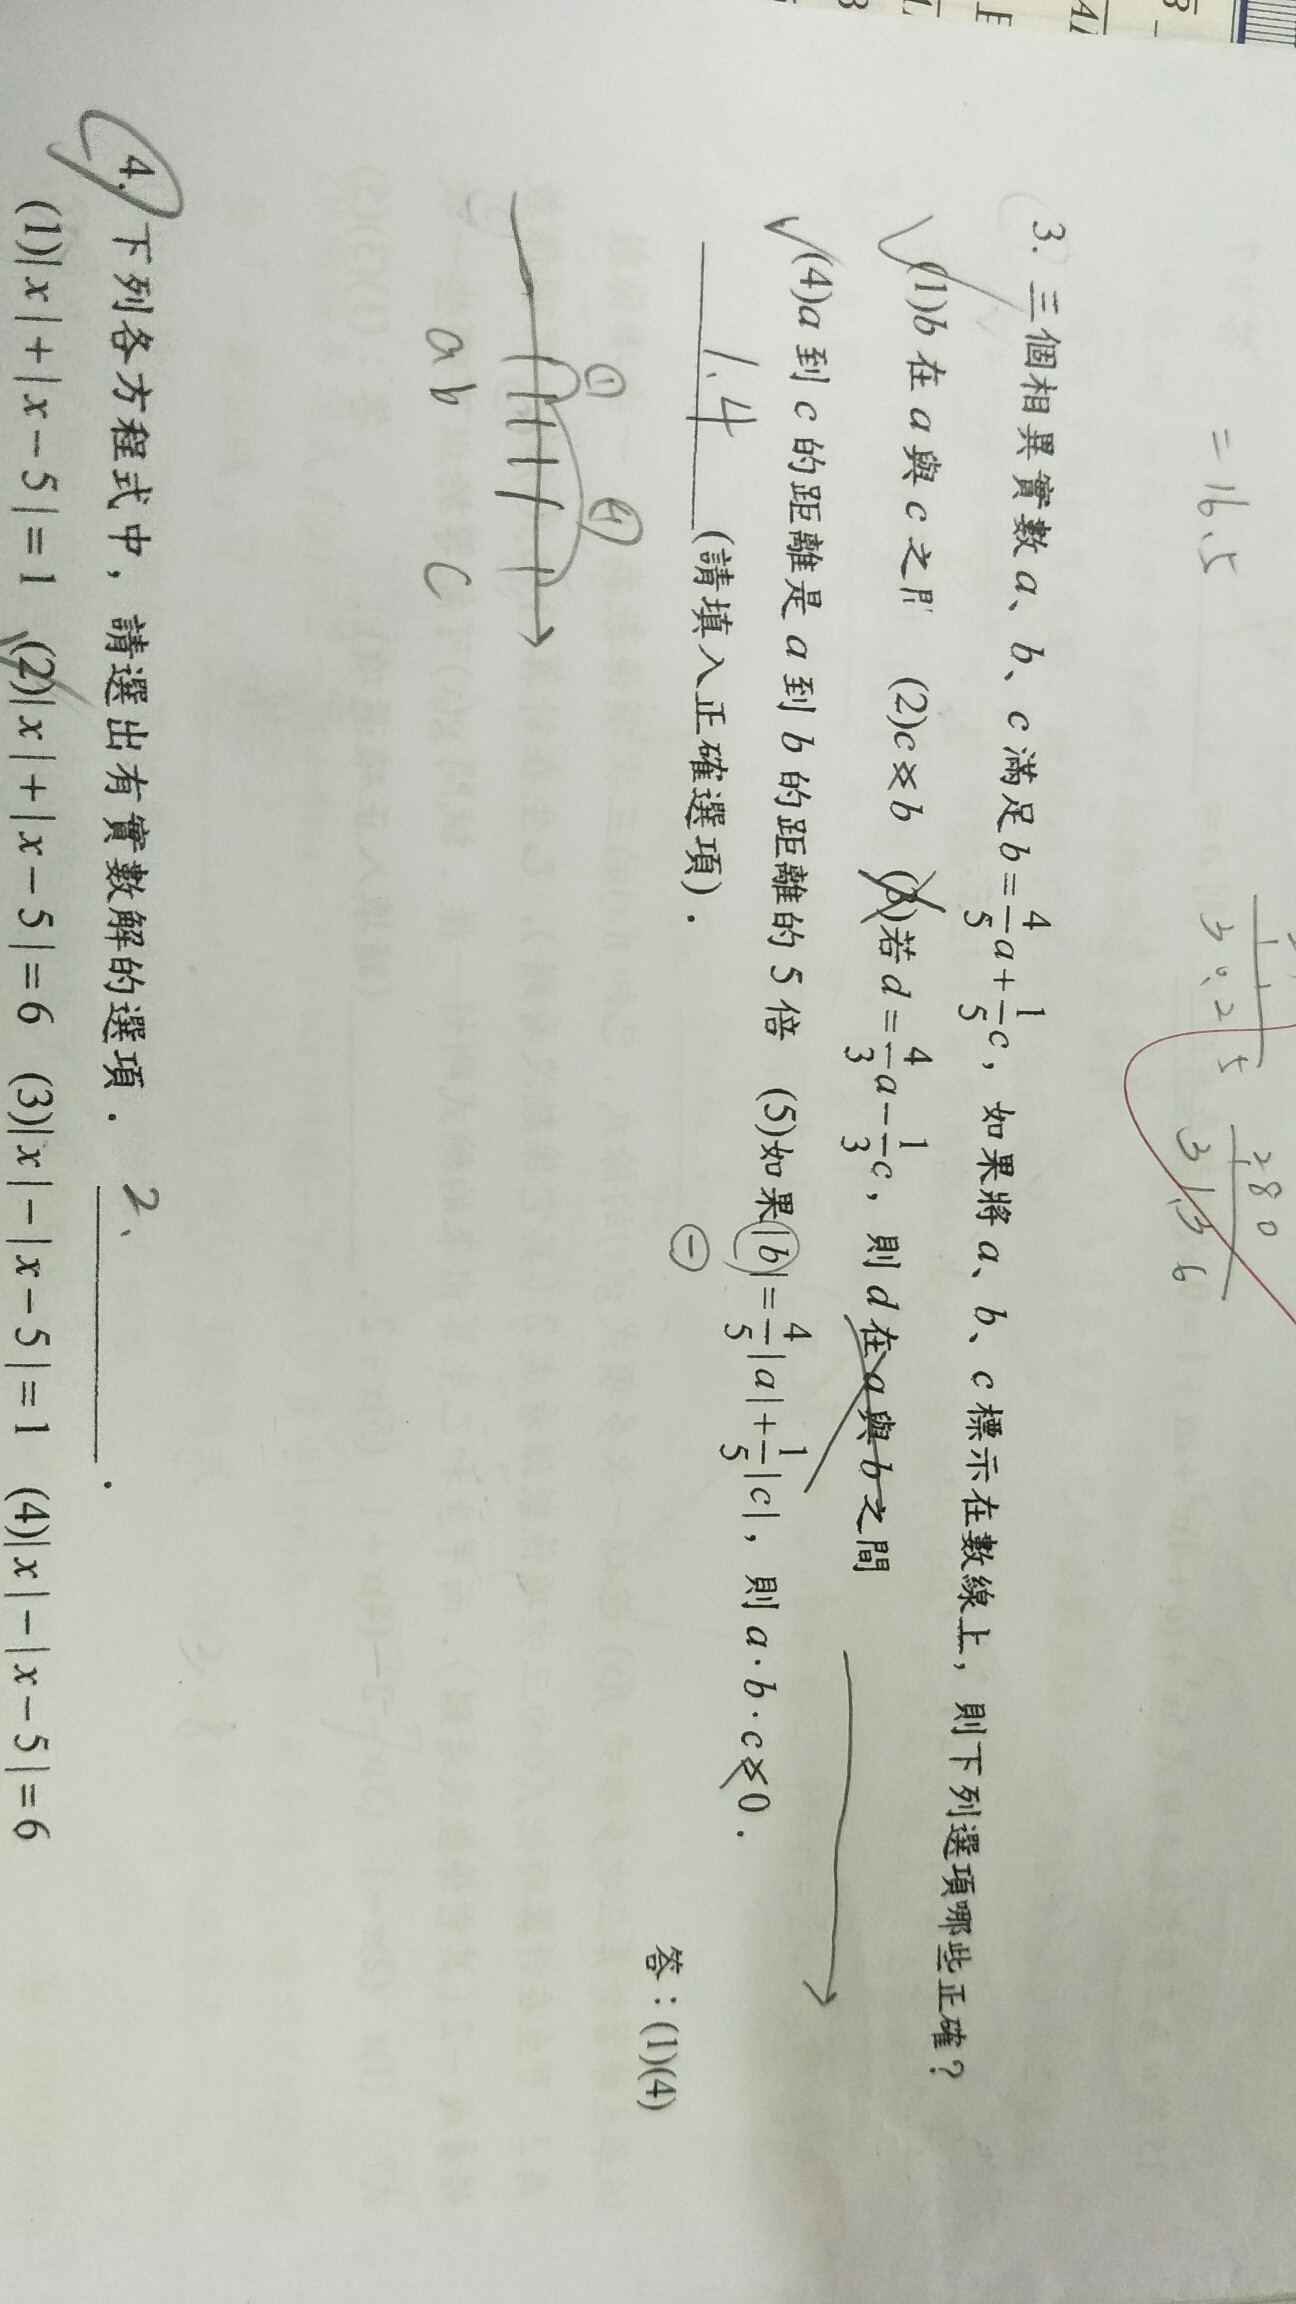 = 16.5
3 0.2 5
280
3 1.3 6
3. 三個相異實數 a、b、c 滿足 b=4/5a+1/5c，如果將 a、b、c 標示在數線上，則下列選項哪些正確？
(1)b 在 a 與 c 之間 (2)c b (3)若 d=4/3a−1/3c，則 d 在 a 與 b 之間
(4)a 到 c 的距離是 a 到 b 的距離的 5 倍 (5)如果|b|=4/5|a|+1/5|c|，則 a·b·c 0.
1.4 (請填入正確選項).
答：(1)(4)
① ④
a b c
4. 下列各方程式中，請選出有實數解的選項. 2、 .
(1)|x|+|x−5|=1 (2)|x|+|x−5|=6 (3)|x|−|x−5|=1 (4)|x|−|x−5|=6